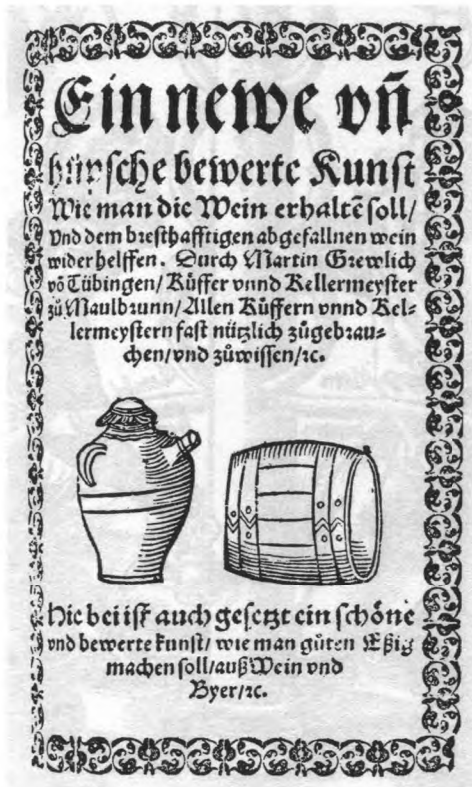 Ein newe vñ
hüpsche bewerte Kunst
Wie man die Wein erhaltẽ soll/
vnd dem bresthafftigen abgefallnen wein
widerhelffen. Durch Martin Grewlich
võ Tübingen/ Küffer vnnd Kellermeyster
zů Maulbrunn/ Allen Küffern vnnd Kel-
lermeystern fast nützlich zůgebrau-
chen/ vnd zůwissen/ ꝛc.
Hie bei ist auch gesetzt ein schöne
vnd bewerte kunst/ wie man gůten Eßig
machen soll/ auß Wein vnd
Byer/ ꝛc.